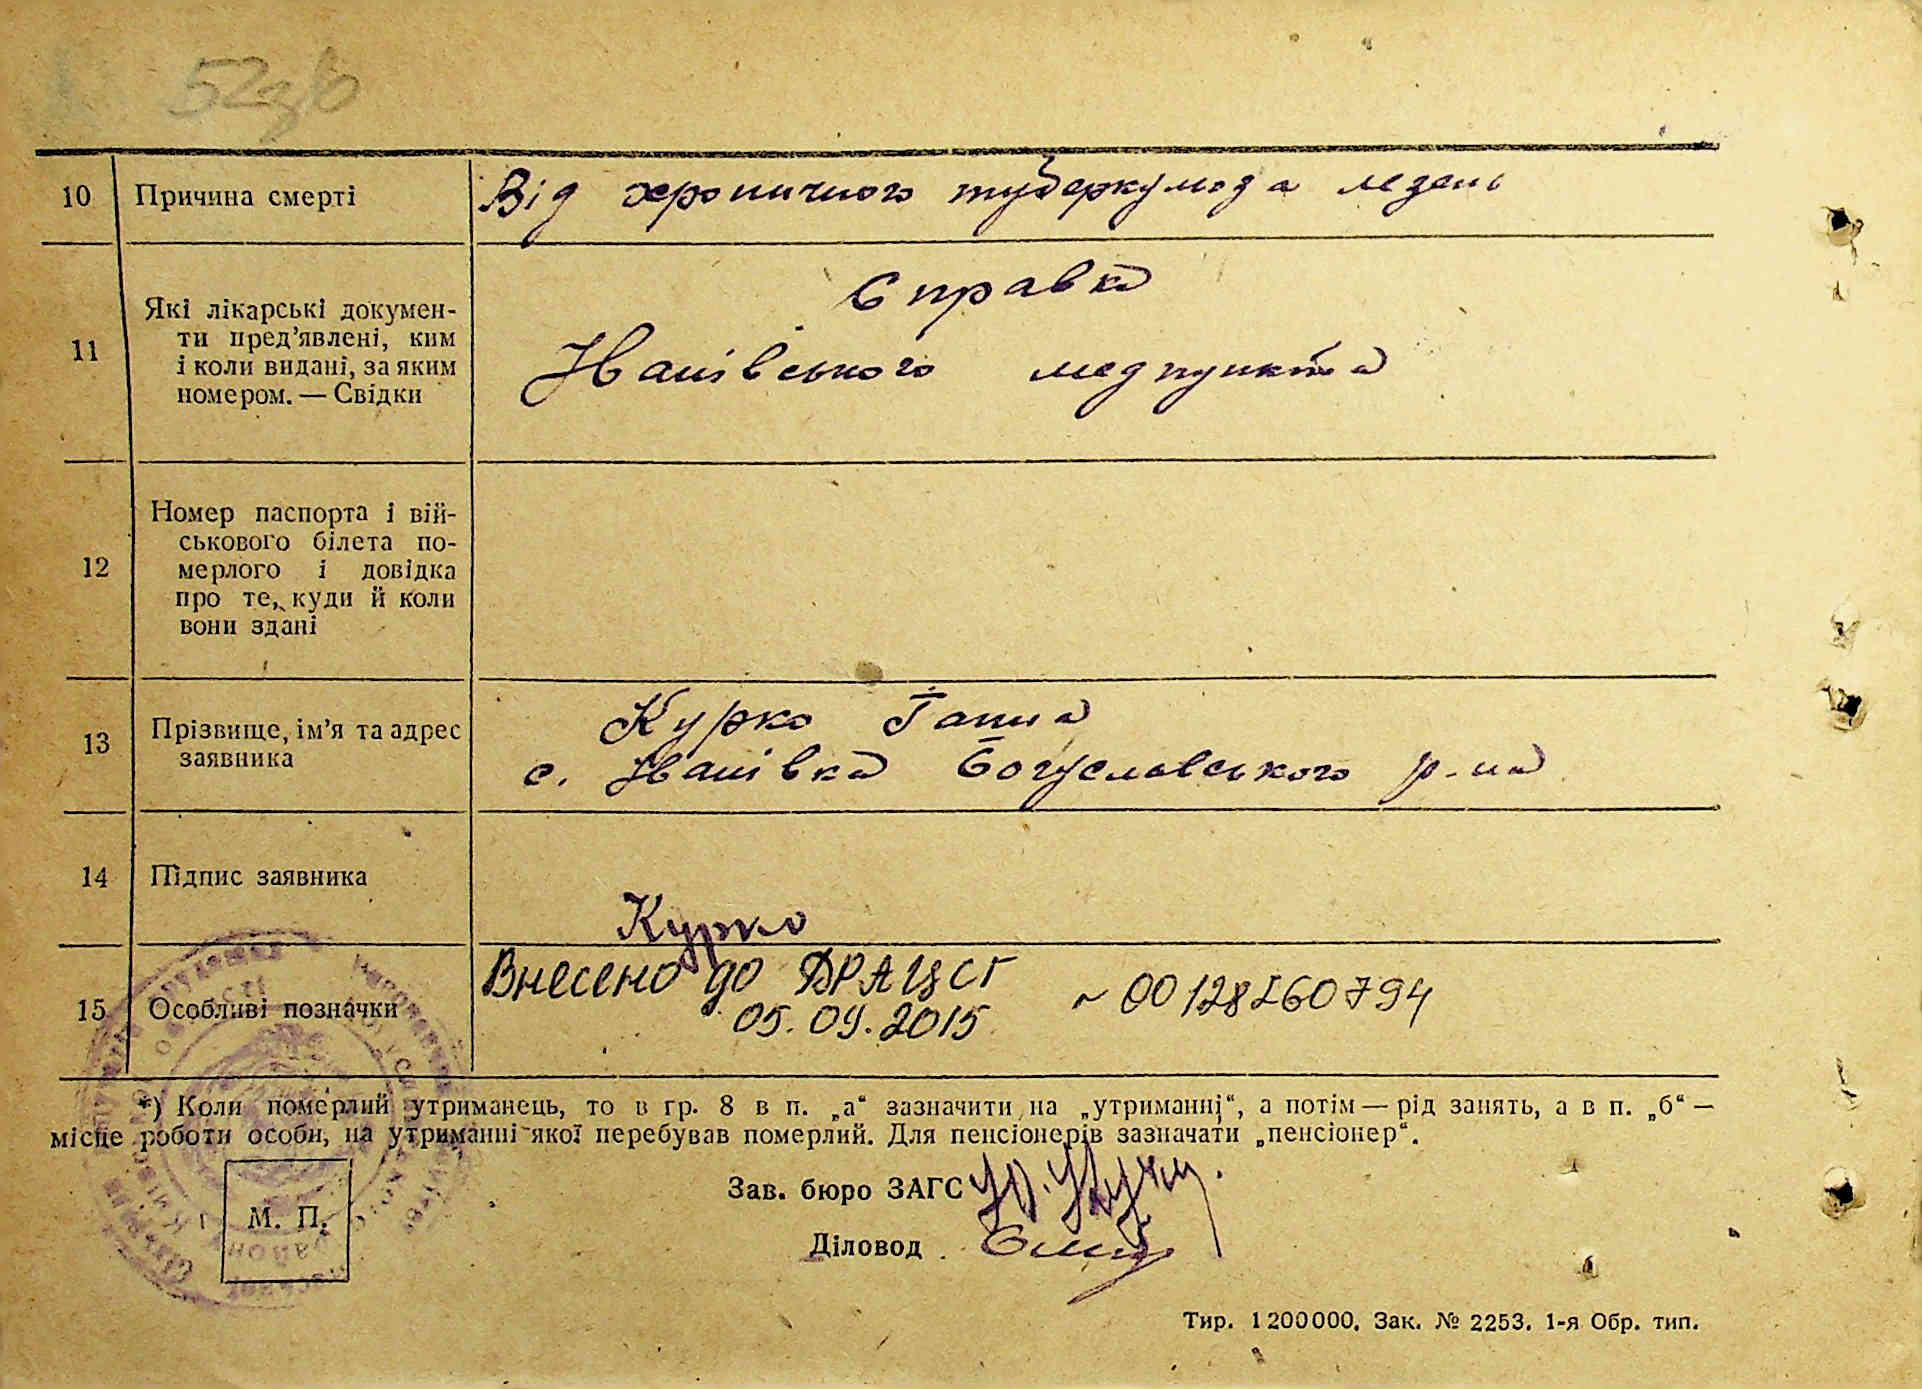 10 Причина смерті Від хроничного туберкульоза легень
11 Які лікарські докумен-
ти пред’явлені, ким
і коли видані, за яким
номером. — Свідки
Справка
Іванівського медпункта
12 Номер паспорта і вій-
ськового білета по-
мерлого і довідка
про те, куди й коли
вони здані
13 Прізвище, ім’я та адрес
заявника
Курко Ганна
с. Іванівка Богуславського р-на
14 Підпис заявника
Курко
15 Особливі позначки
Внесено до ДРАЦСГ
05.09.2015 ~ 00128260794
*) Коли померлий утриманець, то в гр. 8 в п. „а“ зазначити на „утриманні“, а потім — рід занять, а в п. „б“ —
місце роботи особи, на утриманні якої перебував померлий. Для пенсіонерів зазначати „пенсіонер“.
Зав. бюро ЗАГС
М. П.
Діловод
Тир. 1200000. Зак. № 2253. 1-я Обр. тип.